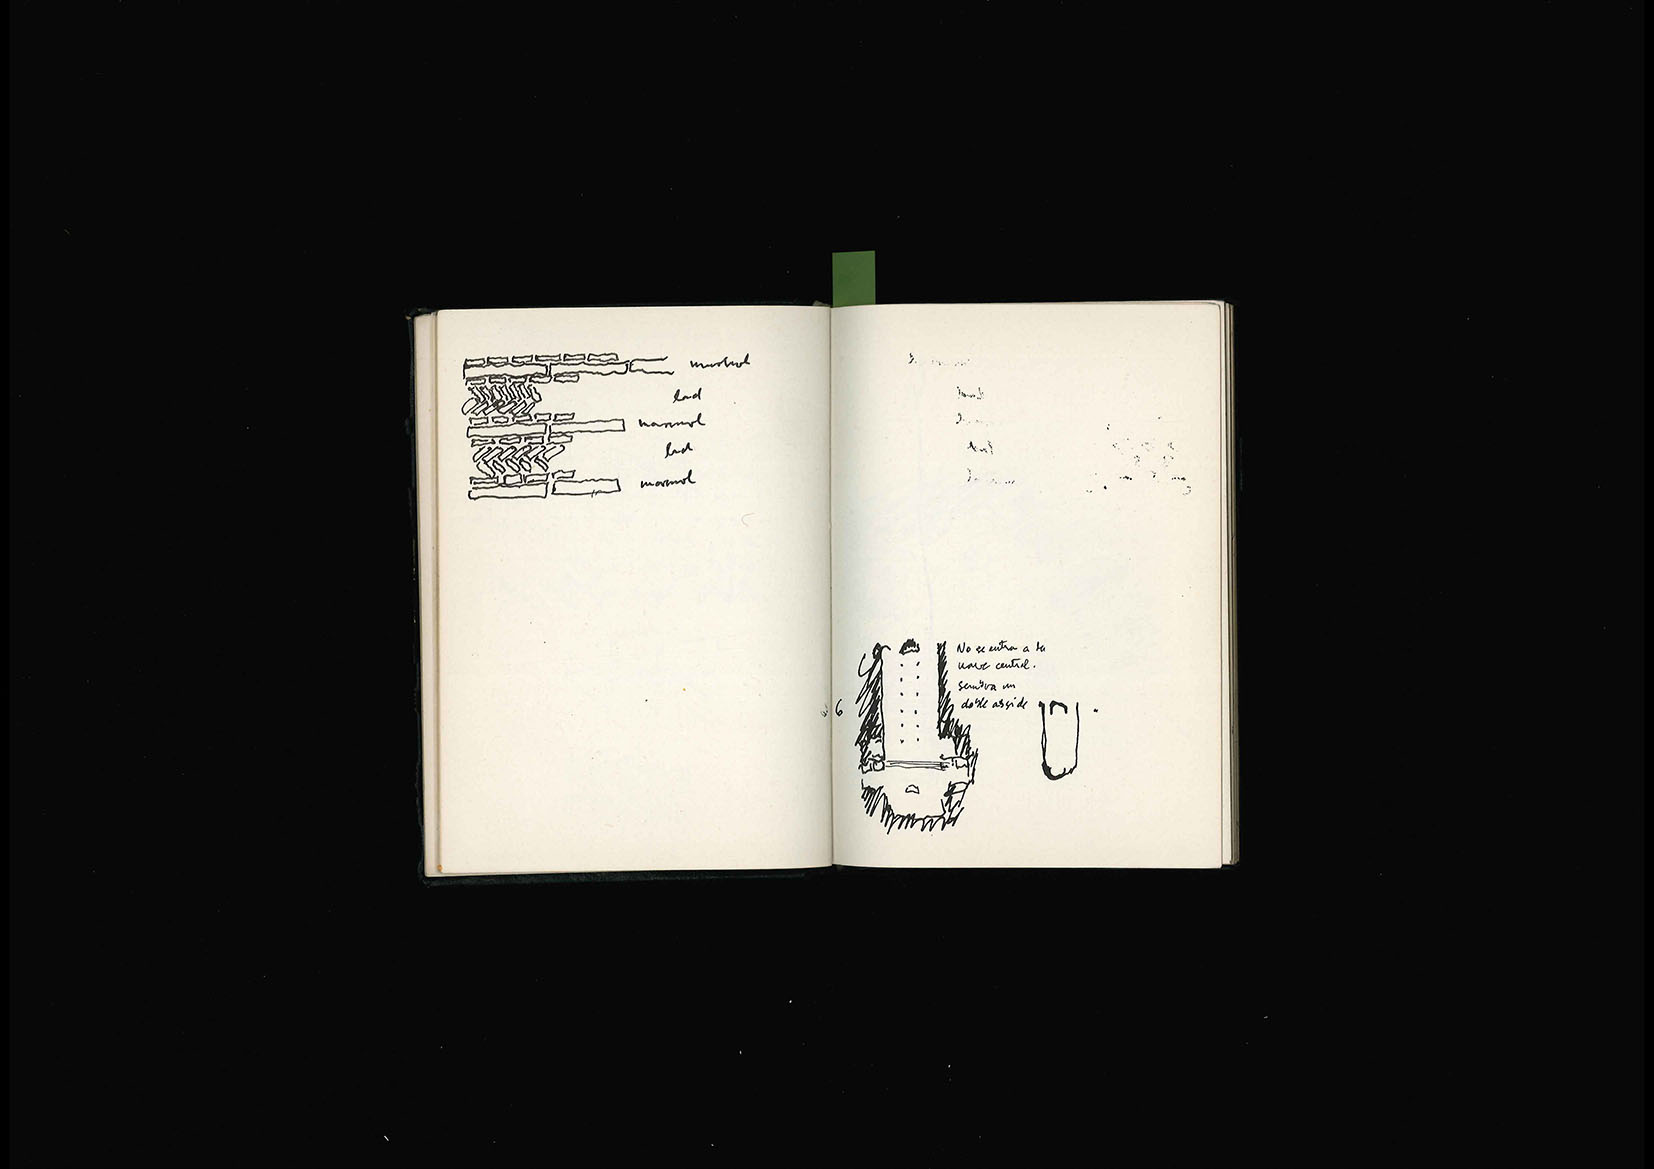 marmol
lad
marmol
lad
marmol
6
No se entra a la
nave central.
Sembra un
doble abside